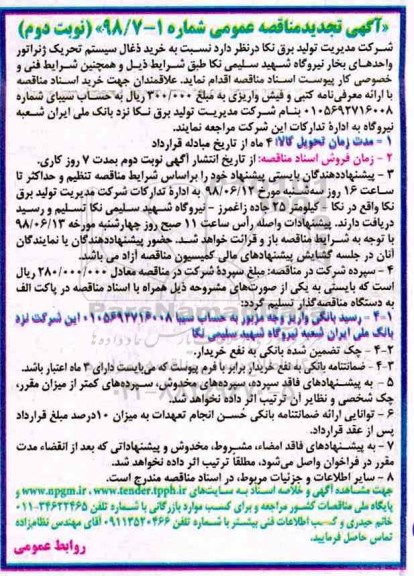 «آگهی تجدیدمناقصه عمومی شماره ۱-۹۸/۷» (نوبت دوم)
شرکت مدیریت تولید برق نکا درنظر دارد نسبت به خرید ذغال سیستم تحریک ژنراتور
واحدهـای بخار نیروگاه شهید سلیمی نکا طبق شرایـط ذیـل و همچنین شرایط فنی و
خصوصی کار پیوست اسـناد مناقصه اقدام نماید. علاقمندان جهت خرید اسـناد مناقصه
با ارائه معرفی‌نامه کتبی و فیش واریزی به مبلغ ۳۰۰/۰۰۰ ریال به حسـاب سیبای شماره
۰۱۰۵۶۹۲۷۱۶۰۰۸ بنـام شـرکت مدیریت تولید برق نـکا نزد بانک ملی ایران شـعبه
نیروگاه به ادارهٔ تدارکات این شرکت مراجعه نمایند.
۱ - مدت زمان تحویل کالا: ۴ ماه از تاریخ مبادله قرارداد
۲ - زمان فروش اسناد مناقصه: از تاریخ انتشار آگهی نوبت دوم بمدت ۷ روز کاری.
۳ - پیشنهاددهندگان بایستی پیشنهاد خود را براساس شرایط مناقصه تنظیم و حداکثر تا
ساعت ۱۶ روز سه‌شنبه مورخ ۹۸/۰۶/۱۲ به ادارهٔ تدارکات شرکت مدیریت تولید برق
نکا واقع در نکا - کیلومتر ۲۵ جاده زاغمرز - نیروگاه شـهید سـلیمی نکا تسـلیم و رسـید
دریافت دارند. پیشنهادات واصله رأس ساعت ۱۱ صبح روز چهارشنبه مورخه ۹۸/۰۶/۱۳
با توجه به شـرایط مناقصه باز و قرائت خواهد شـد. حضور پیشنهاددهندگان یا نمایندگان
آنان در جلسه گشایش پیشنهادهای مالی کمیسیون مناقصه آزاد می باشد.
۴ - سپرده شرکت در مناقصه: مبلغ سپردهٔ شرکت در مناقصه معادل ۲۸۰/۰۰۰/۰۰۰ ریال
است که بایستی به یکی از صورت‌های مشروحه ذیل همراه با اسناد مناقصه در پاکت الف
به دستگاه مناقصه‌گذار تسلیم گردد:
۱-۴ - رسید بانکی واریز وجه مزبور به حساب سیبا ۰۱۰۵۶۹۲۷۱۶۰۰۸ این شرکت نزد
بانک ملی ایران شعبه نیروگاه شهید سلیمی نکا
۲-۴ - چک تضمین شده بانکی به نفع خریدار.
۳-۴ - ضمانتنامه بانکی به نفع خریدار برابر با فرم پیوست که می‌بایست دارای ۳ ماه اعتبار باشد.
۵ - به پیشـنهادهای فاقد سپرده، سپرده‌های مخدوش، سپرده‌های کمتر از میزان مقرر،
چک شخصی و نظایر آن ترتیب اثر داده نخواهد شد.
۶ - توانایی ارائه ضمانتنامه بانکی حُسن انجام تعهدات به میزان ۱۰درصد مبلغ قرارداد
پس از عقد قرارداد.
۷ - به پیشنهادهای فاقد امضاء، مشـروط، مخدوش و پیشنهاداتی که بعد از انقضاء مدت
مقرر در فراخوان واصل می‌شود، مطلقا ترتیب اثر داده نخواهد شد.
۸ - سایر اطلاعات و جزئیات مربوط، در اسناد مناقصه مندرج است.
جهت مشـاهده آگهی و خلاصه اسـناد به سـایت‌های www.tender.tpph.ir ، www.npgm.ir و
پایگاه ملی مناقصات کشور مراجعه و برای کسب موارد بازرگانی با شماره تلفن ۳۴۶۲۲۴۶۵-۰۱۱
خانم حیدری و کسب اطلاعات فنی بیشتر با شماره تلفن ۰۹۱۱۳۵۲۰۴۶۶ آقای مهندس نظام‌زاده
تماس حاصل فرمایید.
روابط عمومی